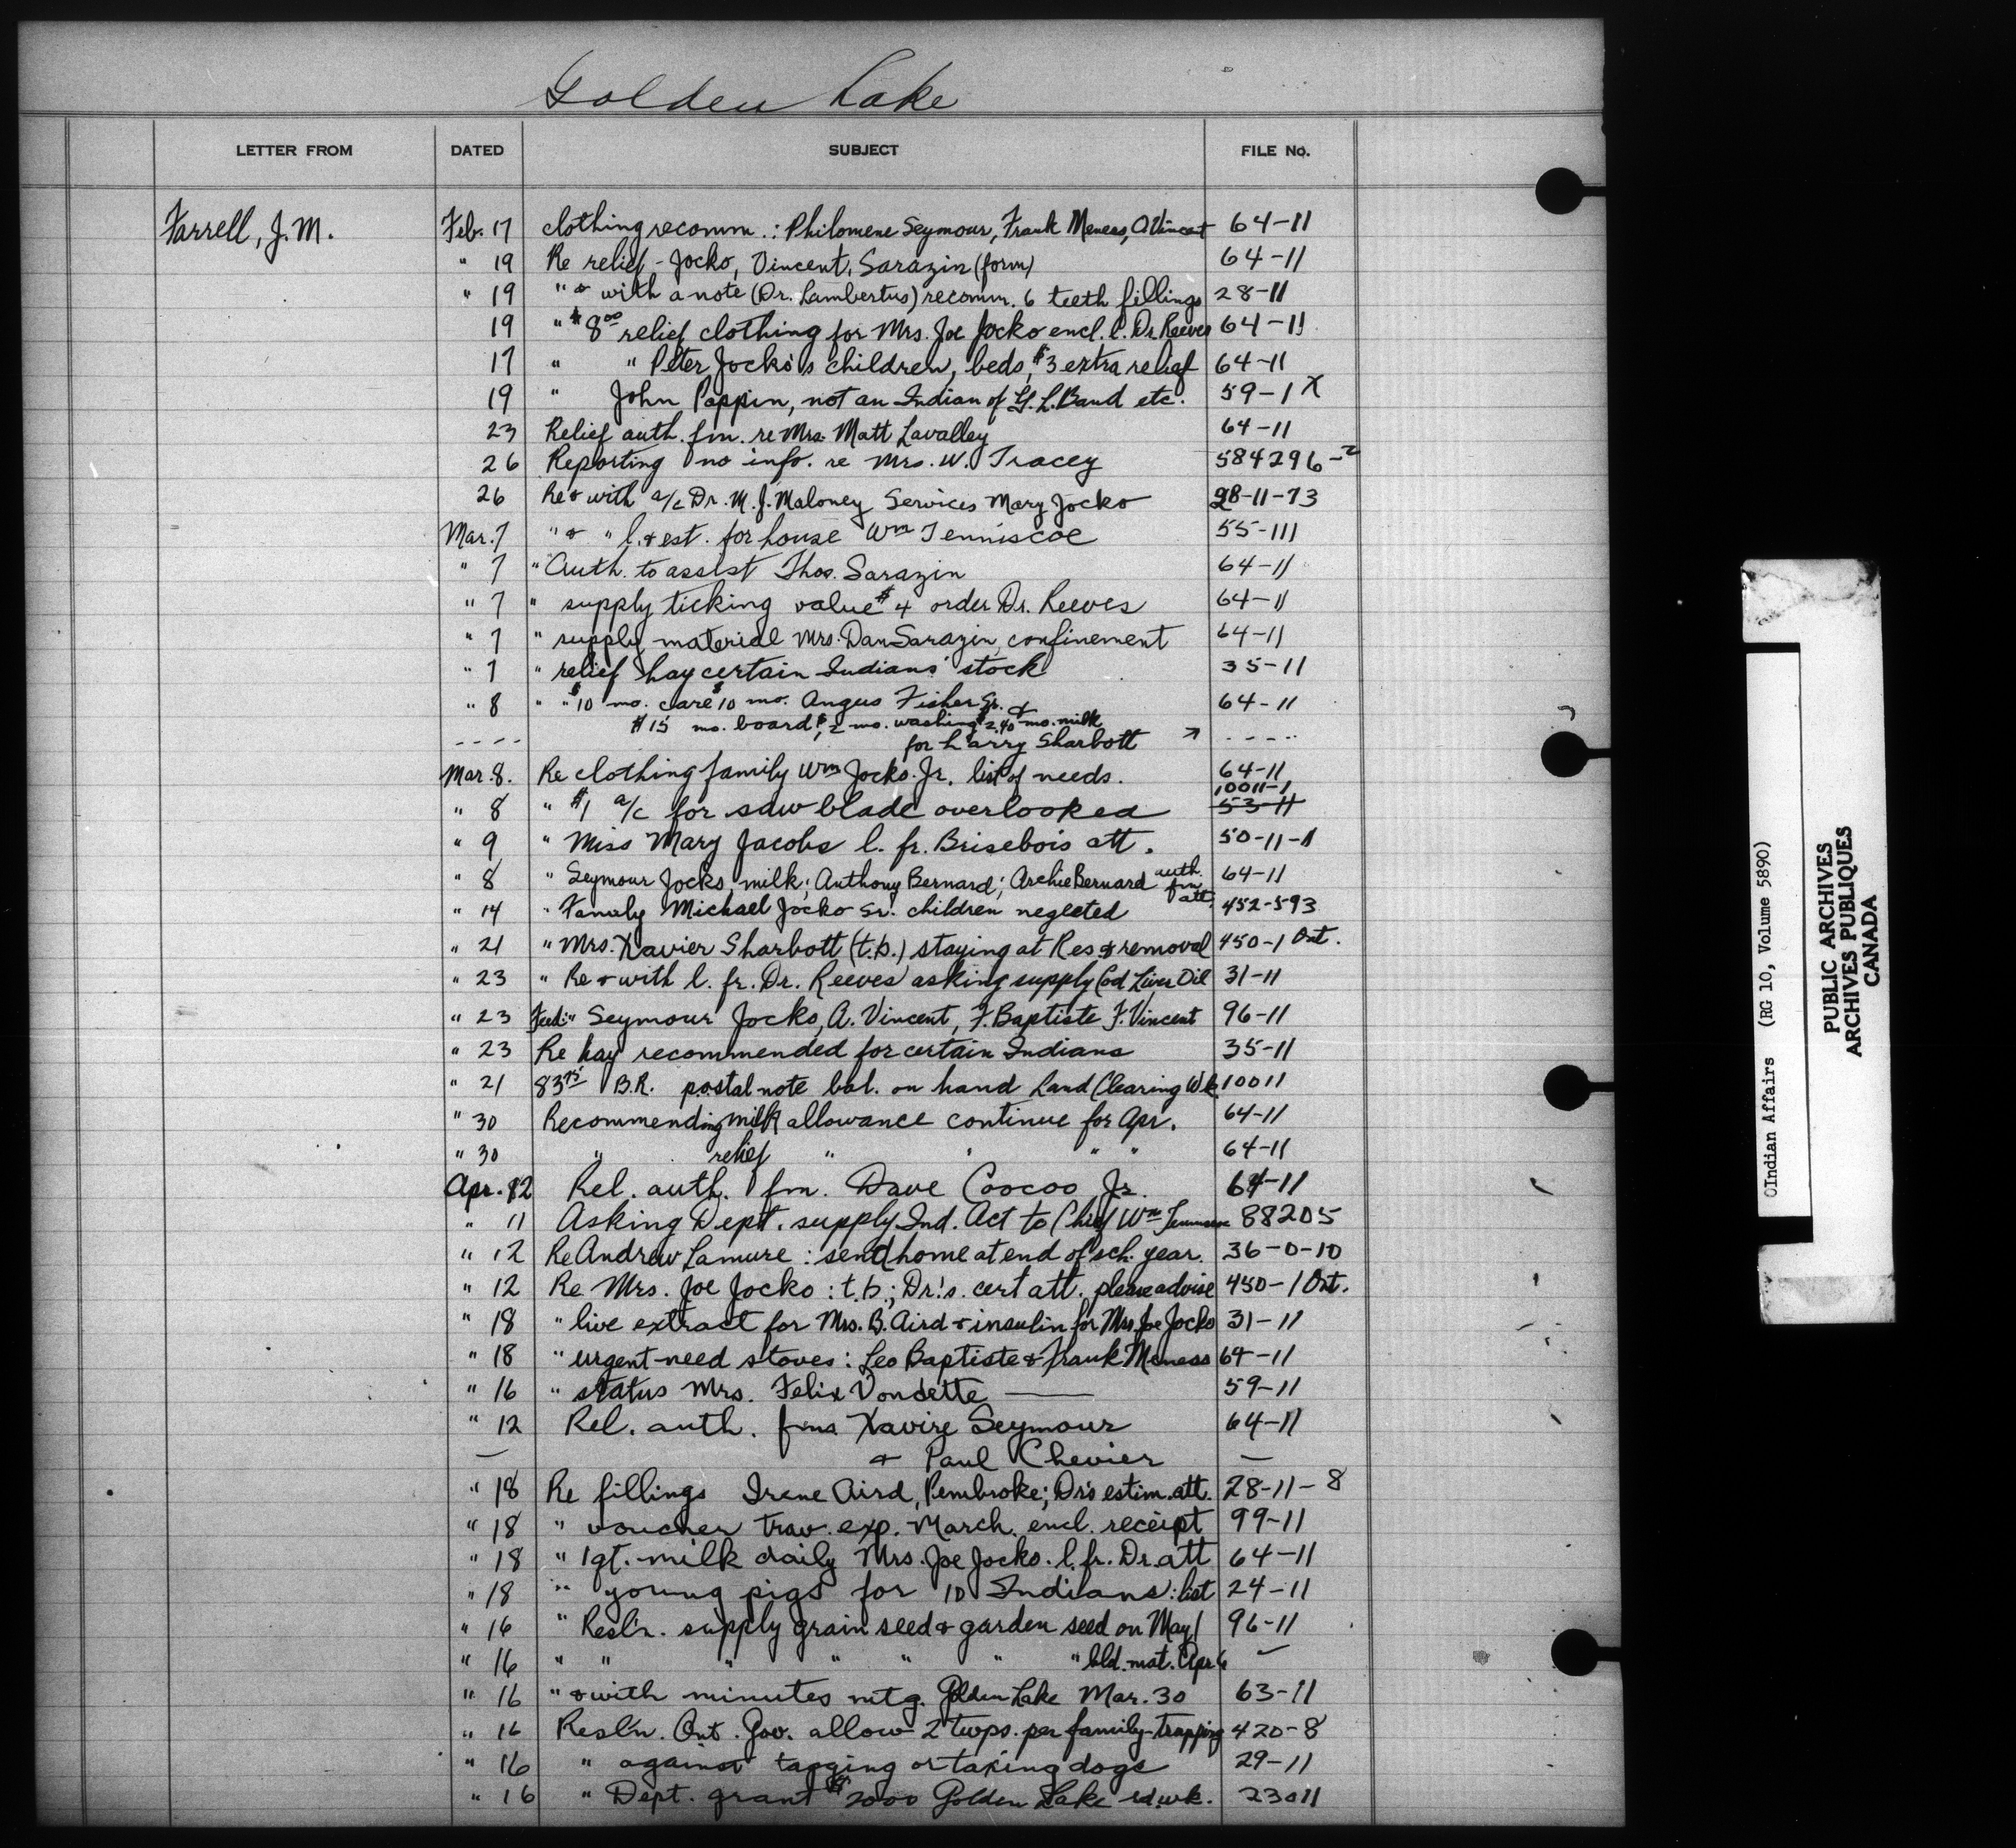 Golden Lake
LETTER FROM DATED SUBJECT FILE No.
Farrell, J.M. Feb. 17 clothing recomm.: Philomene Seymour, Frank Meness, A Vincent 64-11
" 19 Re relief - Jocko, Vincent, Sarazin (form) 64-11
" 19 " & with a note (Dr. Lambertus) recomm. 6 teeth fillings 28-11
19 " $8.00 relief clothing for Mrs. Joe Jocko encl. l. Dr. Reeves 64-11
17 " " Peter Jocko's children, beds, $3 extra relief 64-11
19 " John Pappin, not an Indian of G. L. Band etc. 59-1 X
23 Relief auth. fm. re Mrs. Matt Lavalley 64-11
26 Reporting no info. re Mrs. W. Tracey 584296-2
26 Re & with a/c Dr. M. J. Maloney Services Mary Jocko 28-11-13
Mar. 7 " & " l. & est. for house Wm Tenniscoe 55-111
" 7 " Auth. to assist Thos. Sarazin 64-11
" 7 " supply ticking value $4 order Dr. Reeves 64-11
" 7 " supply material Mrs. Dan Sarazin, confinement 64-11
" 7 " relief hay certain Indians' stock 35-11
" 8 " " $10 mo. care $10 mo. Angus Fisher Sr. & 64-11
$15 mo. board, $2 mo. washing $2.40 mo. milk
---- for Larry Sharbott ----
Mar. 8. Re clothing family Wm Jocko Jr. list of needs. 64-11
10011-1
" 8 " $1 a/c for saw blade overlooked 53-11
" 9 " Miss Mary Jacobs l. fr. Brisebois att. 50-11-1
" 8 " Seymour Jocko, milk; Anthony Bernard; Archie Bernard auth. fm att. 64-11
" 14 " Family Michael Jocko Sr. children neglected 452-593
" 21 " Mrs. Xavier Sharbott (t.b.) staying at Res & removal 450-1 Ont.
" 23 " Re & with l. fr. Dr. Reeves asking supply Cod Liver Oil 31-11
" 23 Feed: " Seymour Jocko, A. Vincent, F. Baptiste F. Vincent 96-11
" 23 Re hay recommended for certain Indians 35-11
" 21 83 75 B.R. postal note bal. on hand Land Clearing Wk. 10011
" 30 Recommending milk allowance continue for Apr. 64-11
" 30 " relief " " " " 64-11
Apr. 12 Rel. auth. fm. Dave Coocoo Jr. 64-11
" 11 Asking Dept. supply Ind. Act to Chief Wm 88205
" 12 Re Andrew Lamure : send home at end of sch. year. 36-0-10
" 12 Re Mrs. Joe Jocko : t.b.; Dr.'s. cert att. please advise 450-1 Ont.
" 18 " live extract for Mrs. B. Aird & insulin for Mrs Joe Jocko 31-11
" 18 " urgent need stoves: Leo Baptiste & Frank Meness 64-11
" 16 " status Mrs. Felix Vondette — 59-11
" 12 Rel. auth. fms Xavire Seymour 64-11
— & Paul Chevier —
" 18 Re fillings Irene Aird, Pembroke; Dr's estim. att. 28-11-8
" 18 " voucher trav. exp. March. encl. receipt 99-11
" 18 " 1 qt. milk daily Mrs. Joe Jocko. l. fr. Dr. att 64-11
" 18 " young pigs for 10 Indians: list 24-11
" 16 " Resl'n. supply grain seed & garden seed on May 1 96-11
" 16 " " " " " " " bld. mat. Apr 6
" 16 " & with minutes mtg. Golden Lake Mar. 30 63-11
" 16 Resl'n. Ont. Gov. allow 2 twps. per family trapping 420-8
" 16 " against tagging or taxing dogs 29-11
" 16 " Dept. grant $2000 Golden Lake rd. wk. 23011
Indian Affairs (RG 10, Volume 5890)
PUBLIC ARCHIVES
ARCHIVES PUBLIQUES
CANADA